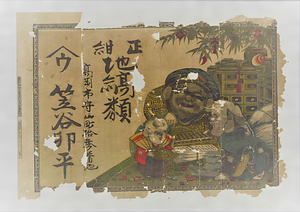 正紺
地縞類
高岡市守山町
ウ
笠谷卯平